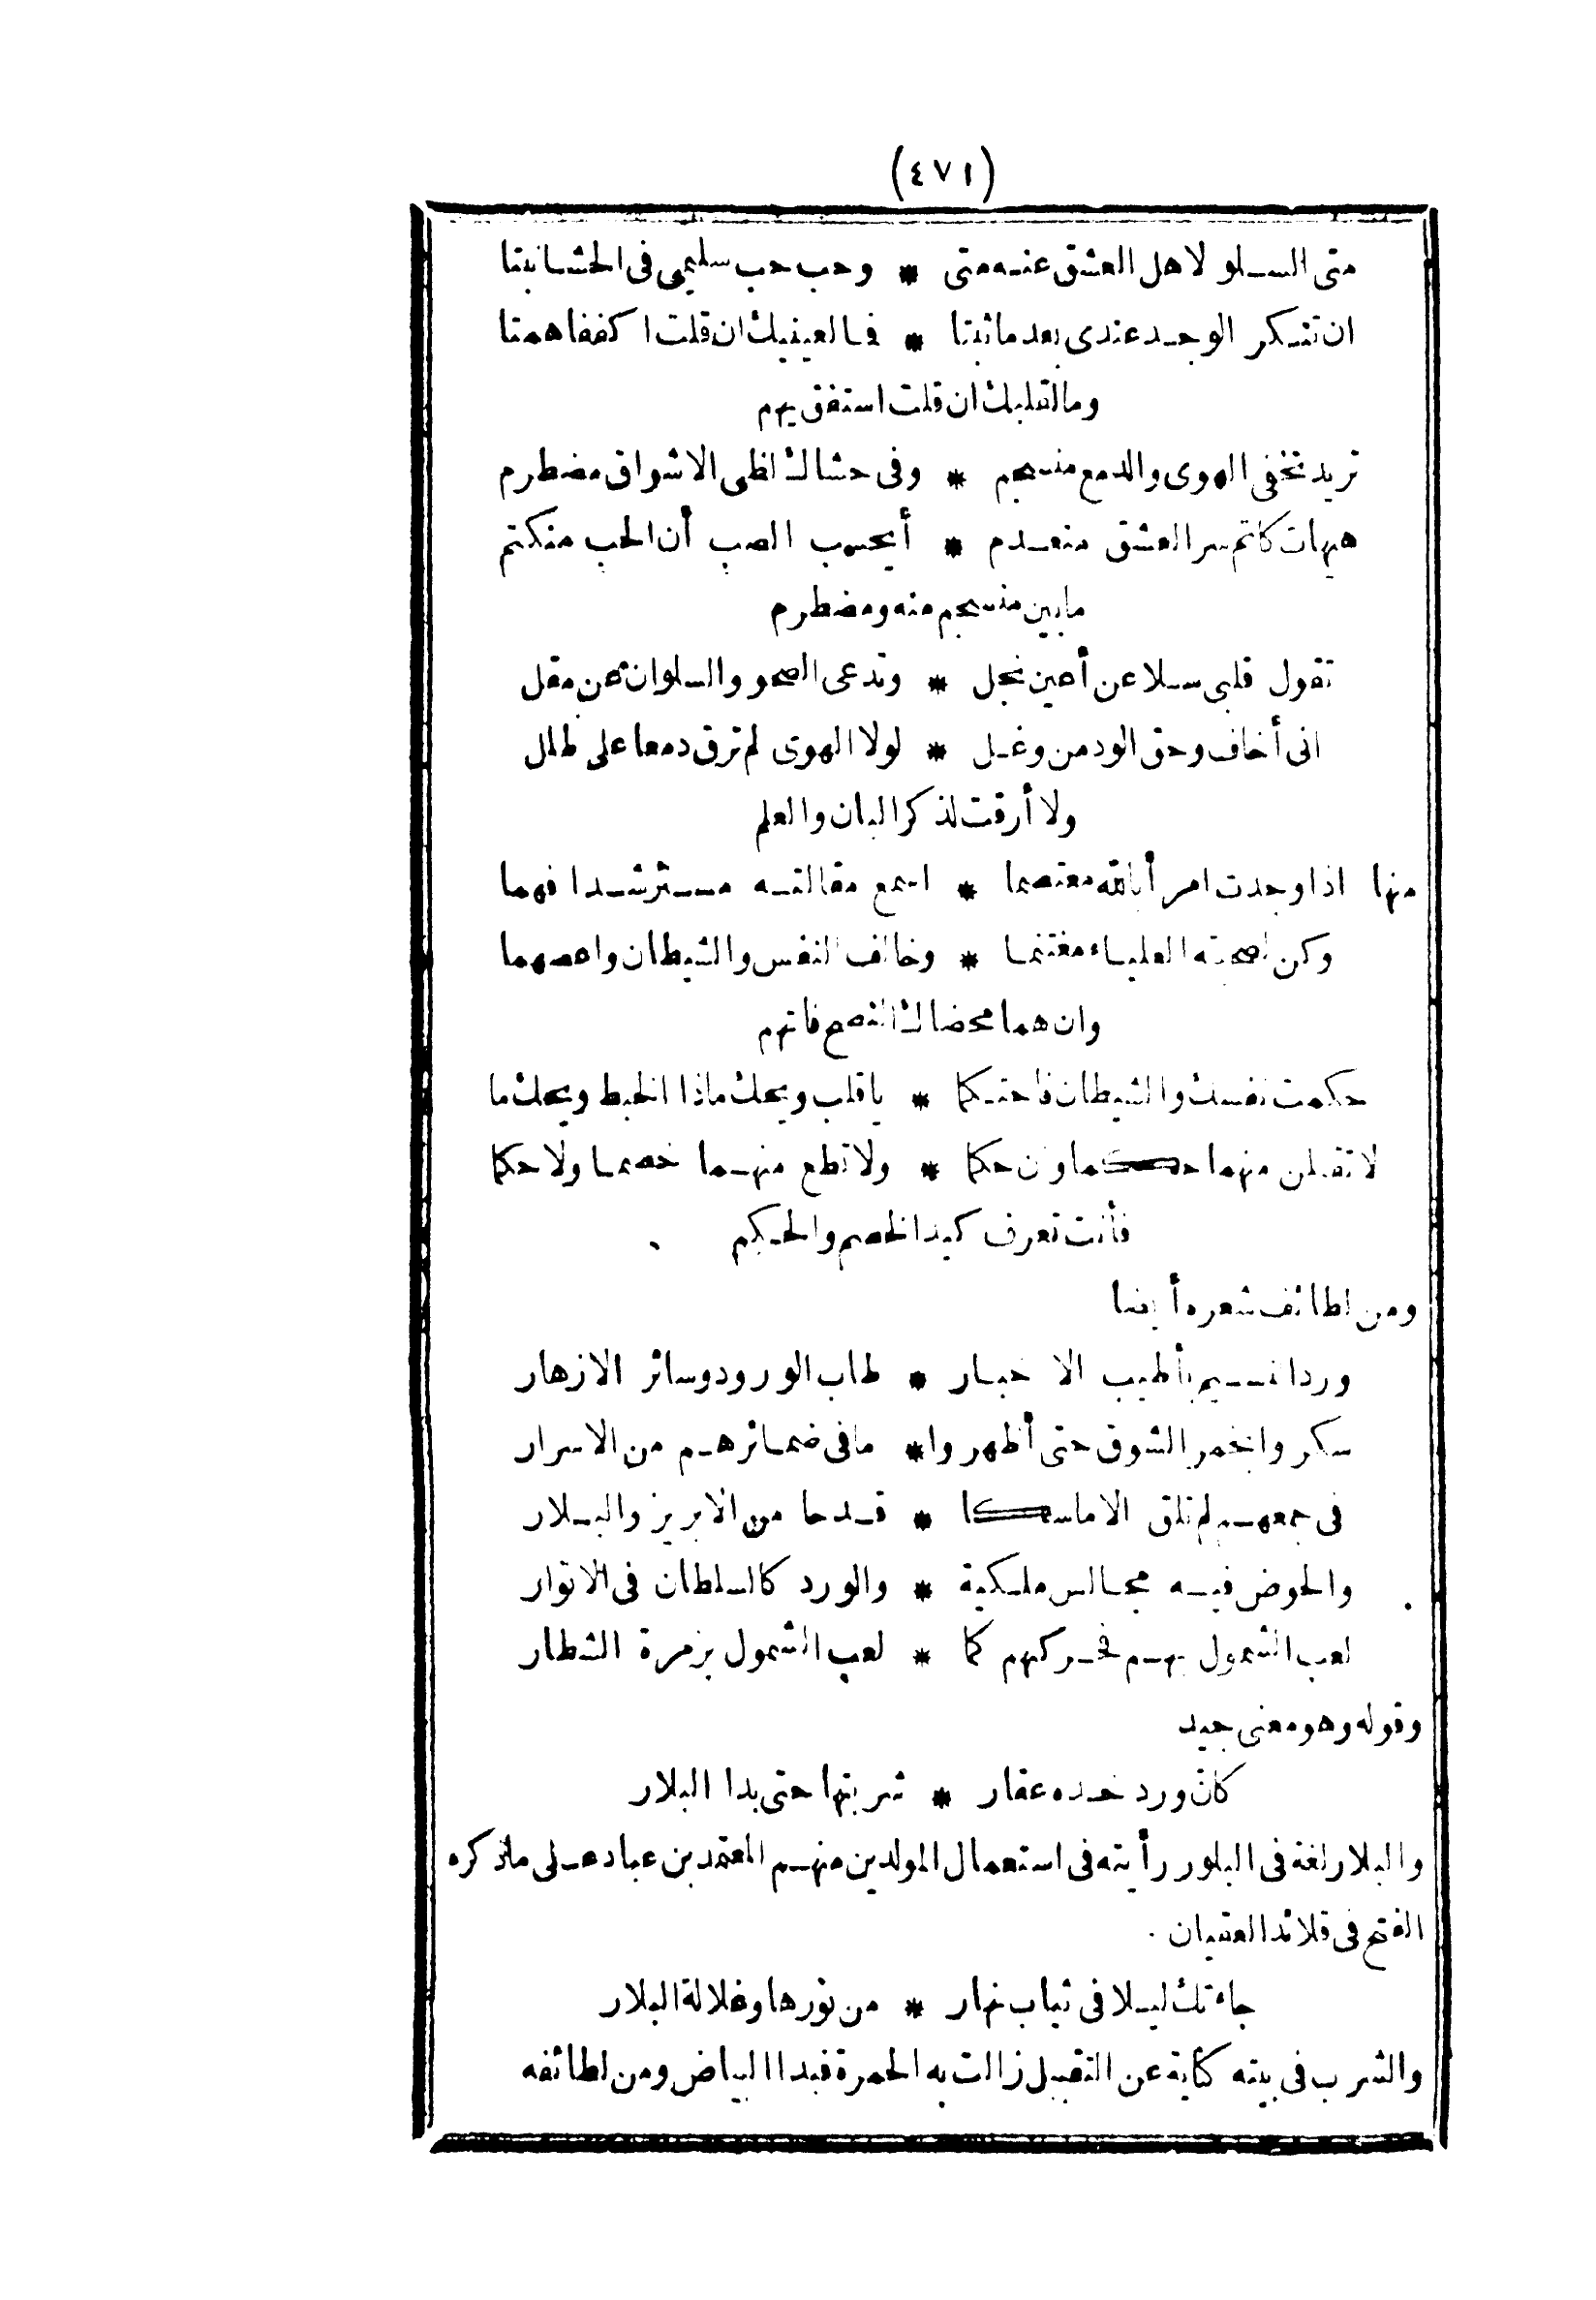 (٤٧١)
متى السلو لاهل العشق عنه متى * وحب حب سليمى فى الحشا نبتا
ان تنكر الوجد عندى بعد ما ثبتا * فما لعينيك ان قلت اكففا همتا
وما لقلبك ان قلت استفق يهم
تريد تخفى الهوى والدمع منسجم * وفى حشاك لظى الاشواق مضطرم
هيهات كاتم سر العشق منعدم * أيحسب الصب أن الحب منكتم
ما بين منسجم منه ومضطرم
تقول قلبى سلا عن أعين نجل * وتدعى الصحو والسلوان عن مقل
انى أخاف وحق الود من وغل * لولا الهوى لم ترق دمعا على طلل
ولا أرقت لذكر البان والعلم
منها اذا وجدت امرأ بالله معتصما * اسمع مقالته مسترشدا فهما
وكن لصحبته العلياء مغتنما * وخالف النفس والشيطان واعصهما
وان هما محضاك النصح فاتهم
حكمت نفسك والشيطان فاحتكما * ياقلب ويحك ماذا الخبط ويحك ما
لا تقبلن منهما حكما وان حكما * ولا تطع منهما خصما ولا حكما
فأنت تعرف كيد الخصم والحكم
ومن لطائف شعره أيضا
ورد النسيم بأطيب الاخبار * طاب الورود وسائر الازهار
سكروا بخمر الشوق حتى أظهروا * ما فى ضمائرهم من الاسرار
فى جمعهم لم تلق الا ماسكا * قدحا من الابريز والبلار
والحوض فيه مجالس ملكية * والورد كالسلطان فى الانوار
لعب الشمول بهم فحركهم كما * لعب الشمول بزمرة الشطار
وقوله وهو معنى جيد
كان ورد خده عقار * شربتها حتى بدا البلار
والبلار لغة فى البلور رأيته فى استعمال المولدين منهم المعتمد بن عباد على ما ذكره
الفتح فى قلائد العقيان
جاءتك ليلا فى ثياب نهار * من نورها وغلالة البلار
والشرب فى بيته كناية عن التقبيل زالت به الحمرة فبدا البياض ومن لطائفه